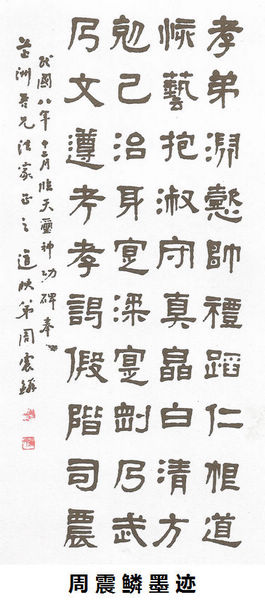 孝弟淵懿帥禮蹈仁根道
核藝抱淑守真皛白清方
剋己治身寔渘寔剛乃武
乃文遵考孝謁假階司農
民國八年十二月臨天璽神功碑奉
芷洲尊兄法家正之 道腴弟周震鱗
周震鳞墨迹